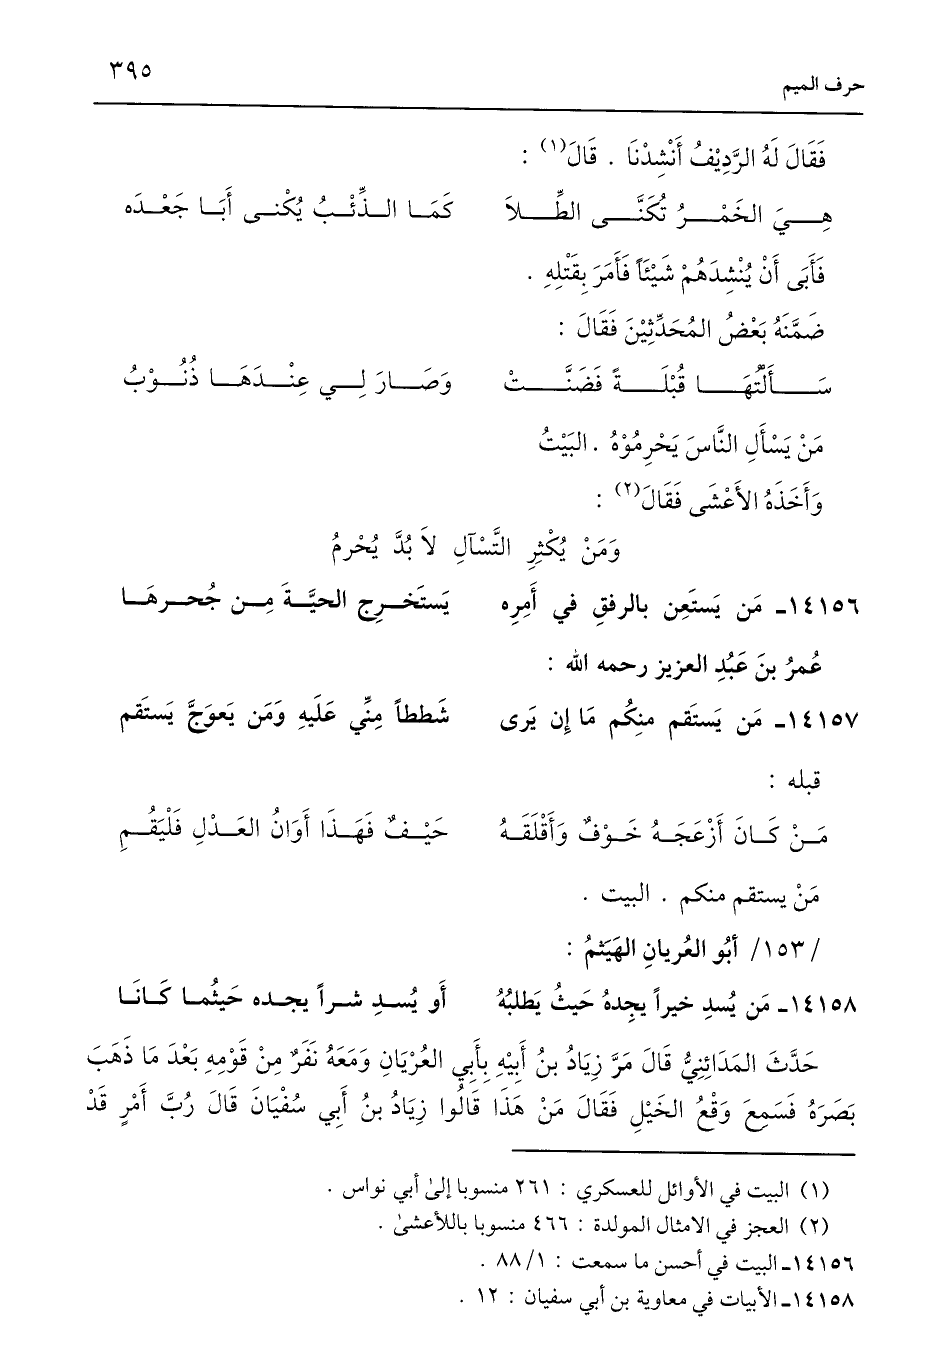 حرف الميم ٣٩٥
فَقَالَ لَهُ الرَّدِيْفُ أَنْشِدْنَا . قَالَ(١) :
هِيَ الخَمْرُ تُكَنَّى الطِّلاَ كَمَا الذِّئْبُ يُكْنى أَبَا جَعْدَه
فَأَبَى أَنْ يُنْشِدَهُمْ شَيْئَاً فَأَمَرَ بِقَتْلِهِ .
ضَمَّنَهُ بَعْضُ المُحَدِّثِيْنَ فَقَالَ :
سَأَلْتُهَا قُبْلَةً فَضَنَّتْ وَصَارَ لِي عِنْدَهَا ذُنُوْبُ
مَنْ يَسْأَلِ النَّاسَ يَحْرِمُوْهُ . البَيْتُ
وَأَخَذَهُ الأَعْشَى فَقَالَ(٢) :
وَمَنْ يُكْثِرِ التَّسْآلِ لاَ بُدَّ يُحْرمُ
١٤١٥٦ـ مَن يَستَعِن بالرفقِ في أَمِرِه يَستَخرِج الحيَّةَ مِن جُحرهَا
عُمرُ بنَ عَبُدِ العزيز رحمه الله :
١٤١٥٧ـ مَن يَستَقم منكُم مَا إِن يَرى شَططاً مِنِّي عَلَيهِ وَمَن يَعوَجَّ يَستَقم
قبله :
مَنْ كَانَ أَزْعَجَهُ خَوْفٌ وَأَقْلَقَهُ حَيْفٌ فَهَذَا أَوَانُ العَدْلِ فَلْيَقُمِ
مَنْ يستقم منكم . البيت .
/١٥٣/ أَبُو العُريانِ الهَيَثمُ :
١٤١٥٨ـ مَن يُسدِ خيراً يجِدهُ حَيثُ يَطلبُهُ أَو يُسدِ شراً يجده حَيثُما كَانَا
حَدَّثَ المَدَائِنِيُّ قَالَ مَرَّ زِيَادُ بنُ أَبِيْهِ بِأَبِي العُرْيَانِ وَمَعَهُ نَفَرٌ مِنْ قَوْمِهِ بَعْدَ مَا ذَهَبَ
بَصَرَهُ فَسَمِعَ وَقْعُ الخَيْلِ فَقَالَ مَنْ هَذَا قَالُوا زِيَادُ بنُ أَبِي سُفْيَانَ قَالَ رُبَّ أَمْرٍ قَدْ
(١) البيت في الأوائل للعسكري : ٢٦١ منسوبا إلىٰ أبي نواس .
(٢) العجز في الامثال المولدة : ٤٦٦ منسوبا باللأعشىٰ .
١٤١٥٦ـ البيت في أحسن ما سمعت : ١/ ٨٨ .
١٤١٥٨ـ الأبيات في معاوية بن أبي سفيان : ١٢ .